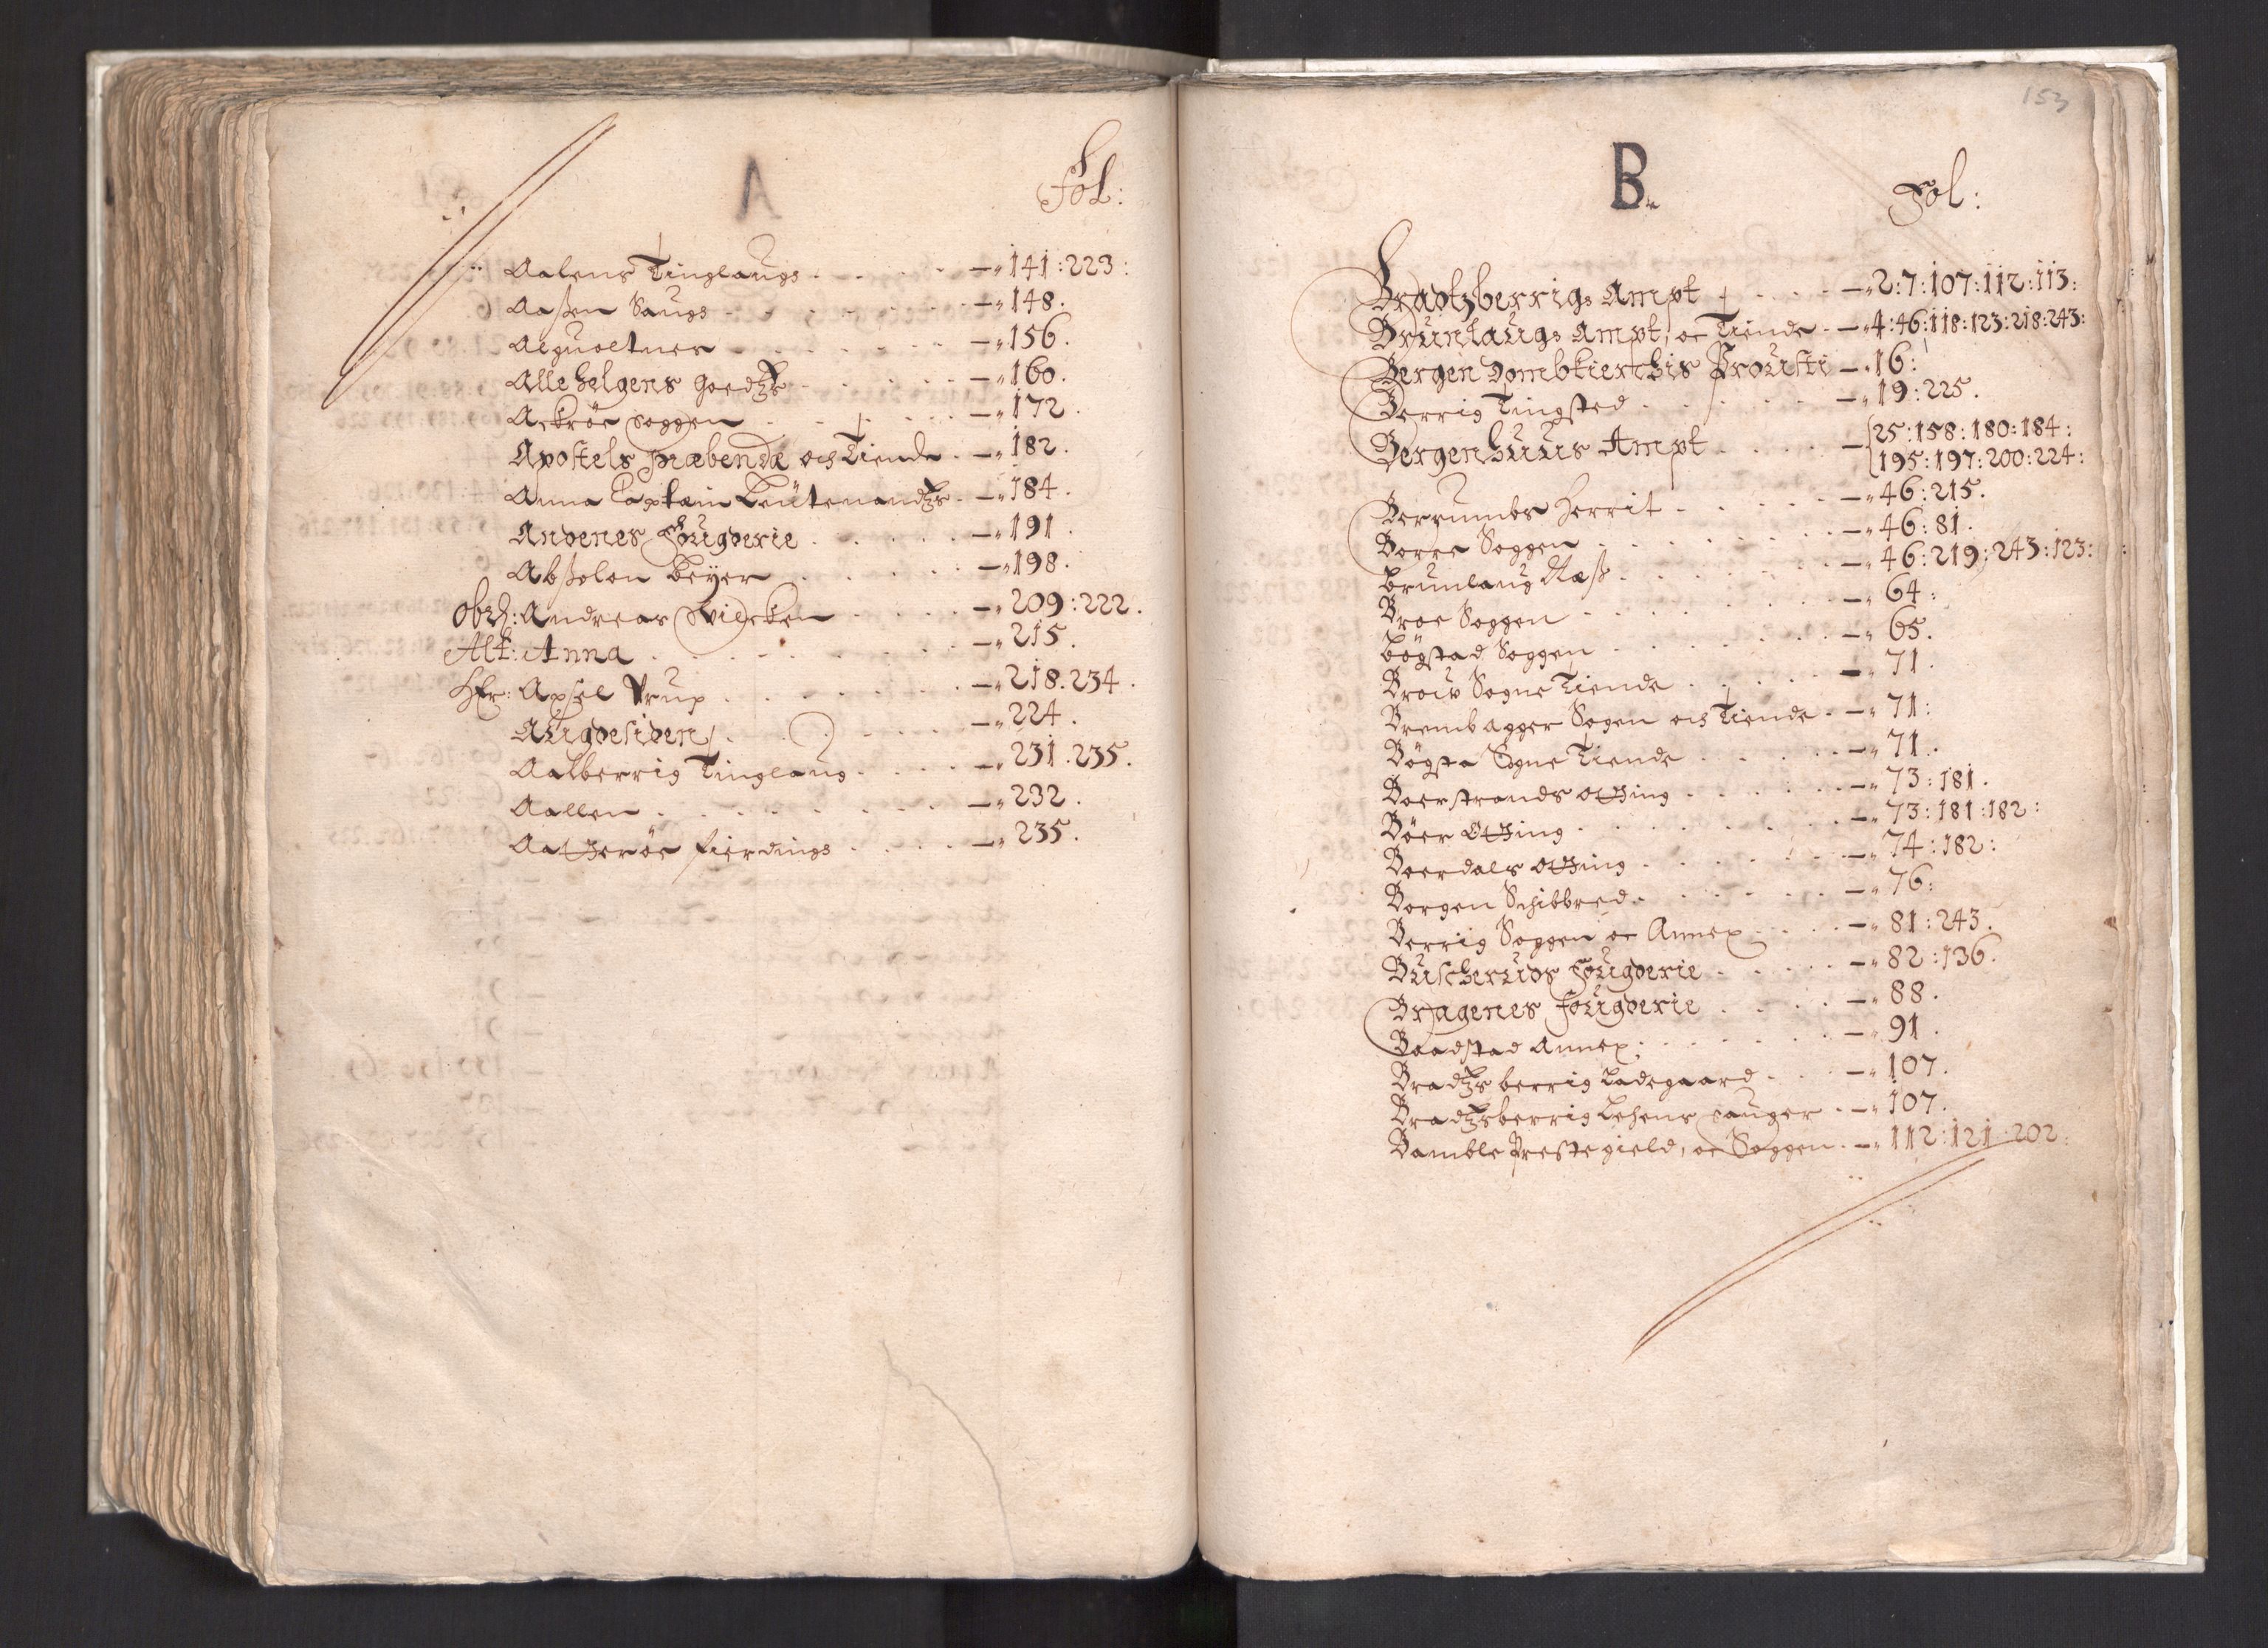 A
Fol:
Aalens Tinglaugs - 141:223:
Aaßen Saugs - 148.
Alguoltnes - 156.
Alle helgens Goedtz - 160.
Ackröe Soggen - 172.
Apostels Præbende och Tiende - 182.
Anna Captain Leütenandtz - 184.
Andenes Fougderie - 191.
Abßolon Beÿer - 198.
Obr: Andreas Wilcken - 209:222.
Alt: Anna - 215.
Hr: Axsel Vrup - 218.234.
Augdesiden - 224.
Aalberrig Tinglaug - 231.235.
Aallen - 232.
Aatzeröe fierdings - 235.
153
B.
Fol:
Bradtzberrigs Ampt - 2:7:107:112:113:
Brunlaugs Ampt, oc Tiende - 4:46:118:123:218:243:
Bergen Dombkierchis Prousti - 16:
Berrig Tingsted - 19:225.
Bergenhuus Ampt - 25:158:180:184:
195:197:200:224:
Berrumbs Herrit - 46:215.
Borre Soggen - 46:81.
Brunlaug Næß - 46:219:243:123:
Broe Soggen - 64:
Bögstad Soggen - 65.
Sogne Tiende - 71.
Brembagger Sogen och Tiende - 71:
Bögsta Sogne Tiende - 71.
Boerstrands Otting - 73:181.
Böer Otting - 73:181:182:
Boerdals Otting - 74:182:
Borgen Schibbred - 76:
Berrig Soggen oc Annex - 81:243.
Buscheruds Fougderie - 82:136.
Bragenes Fougderie - 88.
Baadstad Annex - 91.
Bradtzberrig Ladegaard - 107.
Bradtzberrig Lehens - 107.
Bamble Prestegield, oc Soggen - 112:121:202: